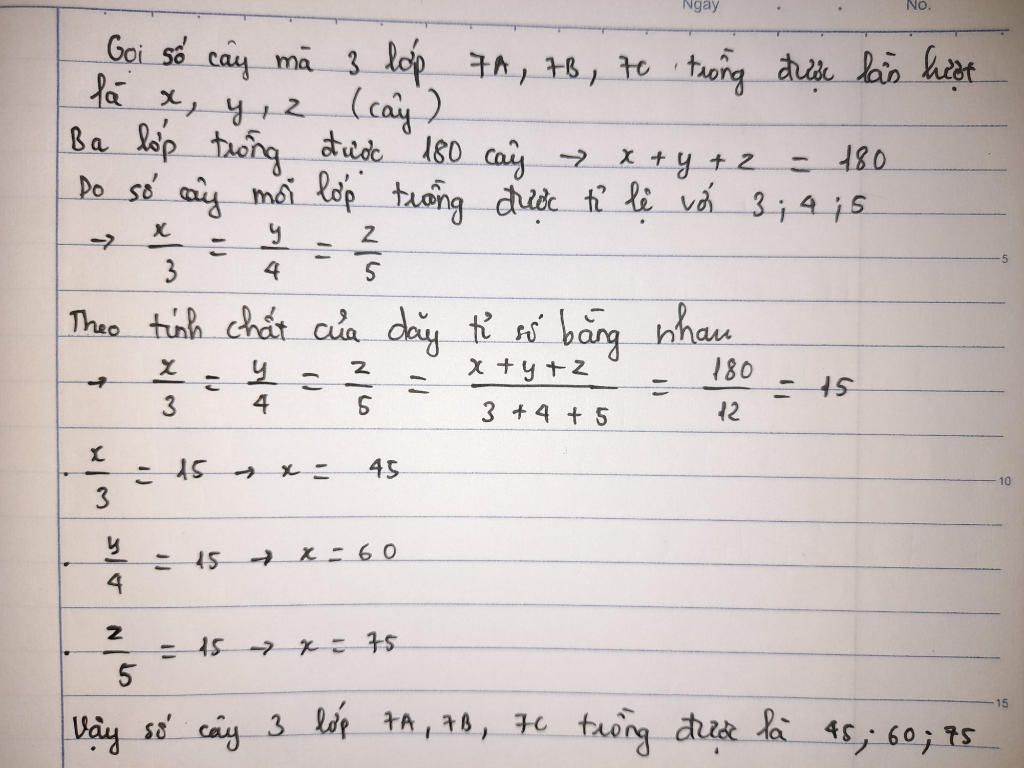 Ngày . . No.
Gọi số cây mà 3 lớp 7A, 7B, 7C trồng được lần lượt
là x, y, z (cây)
Ba lớp trồng được 180 cây → x + y + z = 180
Do số cây mỗi lớp trồng được tỉ lệ với 3; 4; 5
→ x/3 = y/4 = z/5
5
Theo tính chất của dãy tỉ số bằng nhau
→ x/3 = y/4 = z/5 = (x + y + z)/(3 + 4 + 5) = 180/12 = 15
. x/3 = 15 → x = 45
10
. y/4 = 15 → x = 60
. z/5 = 15 → x = 75
15
Vậy số cây 3 lớp 7A, 7B, 7C trồng được là 45; 60; 75